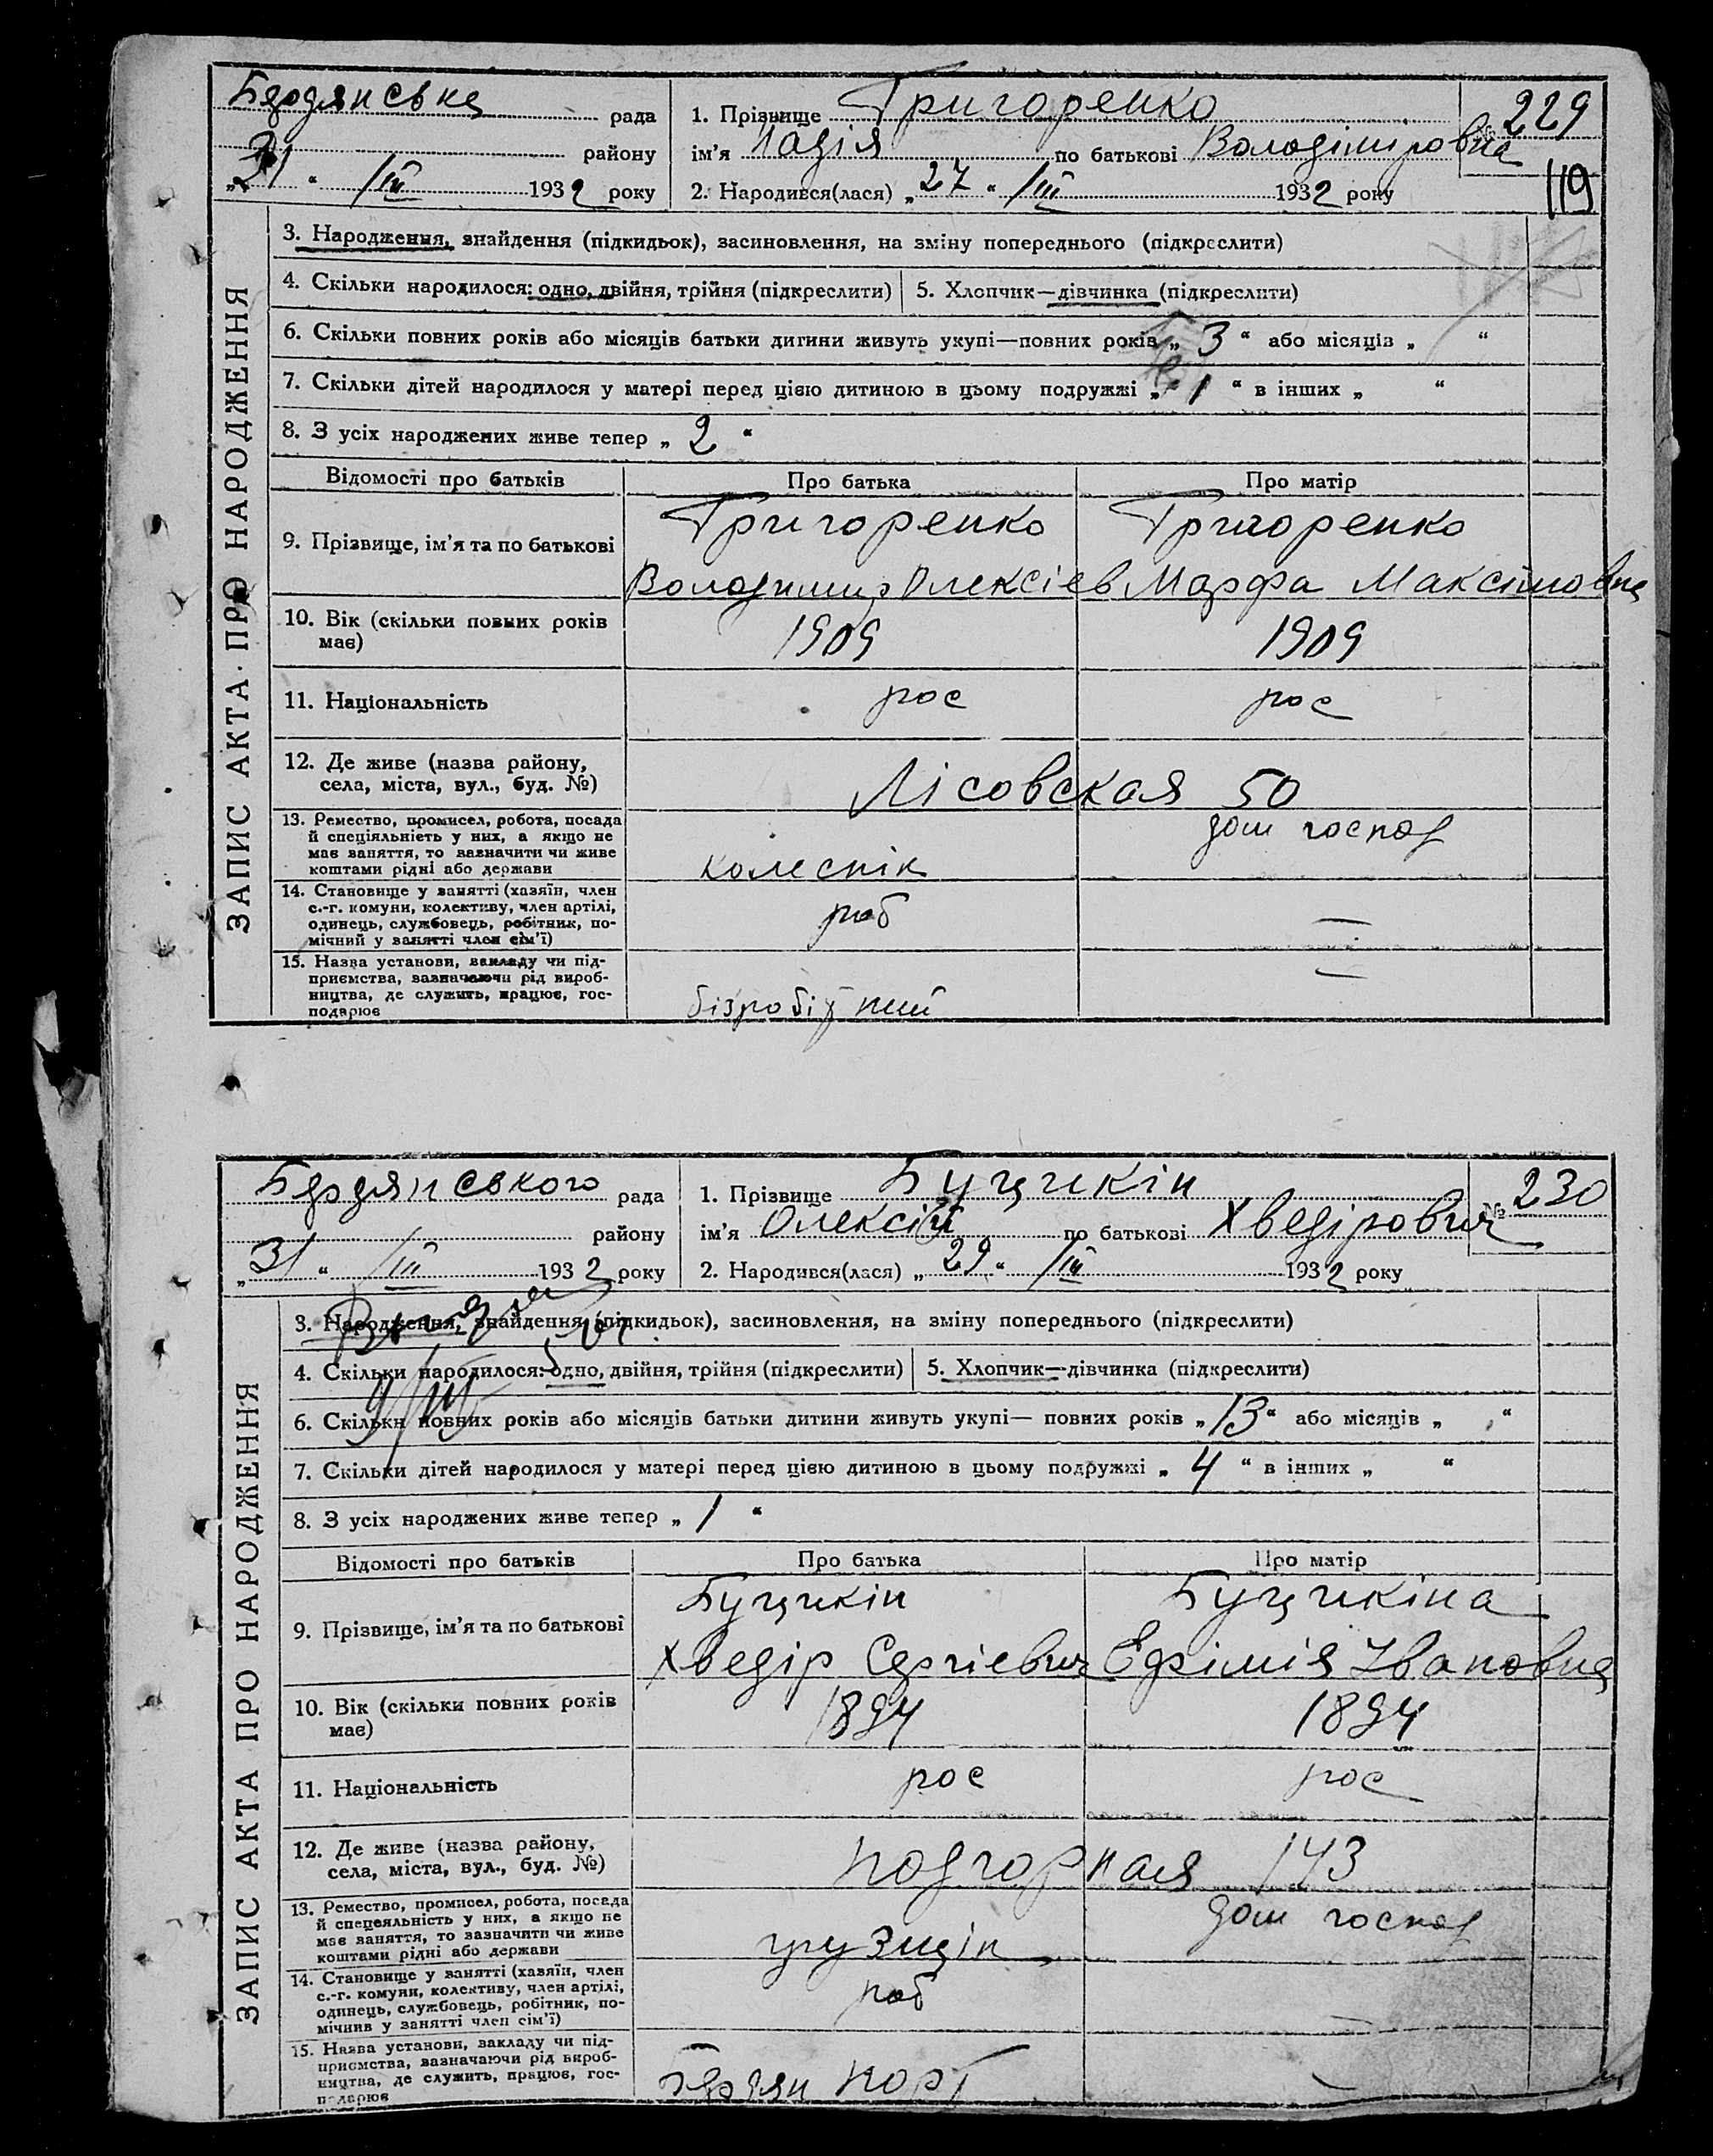 Бердянська рада
району
„31“ III 1932 року
1. Прізвище Григоренко
ім'я Надія по батькові Володіміровна
2. Народився(лася) „27“ III 1932 року
№ 229
119
ЗАПИС АКТА ПРО НАРОДЖЕННЯ
3. Народження, знайдення (підкидьок), засиновлення, на зміну попереднього (підкреслити)
4. Скільки народилося: одно, двійня, трійня (підкреслити) 5. Хлопчик—дівчинка (підкреслити)
6. Скільки повних років або місяців батьки дитини живуть укупі—повних років „3“ або місяців „ “
7. Скільки дітей народилося у матері перед цією дитиною в цьому подружжі „1“ в інших „ “
8. З усіх народжених живе тепер „2“
Відомості про батьків Про батька Про матір
9. Прізвище, ім'я та по батькові
Григоренко Григоренко
Володимир Олексієв Марфа Максімовна
10. Вік (скільки повних років
має)
1909 1909
11. Національність рос рос
12. Де живе (назва району,
села, міста, вул., буд. №)
Лісовская 50
13. Ремество, промисел, робота, посада
й спеціяльність у них, а якщо не
має заняття, то зазначити чи живе
коштами рідні або держави
колеснік дом господ
14. Становище у занятті (хазяїн, член
с.-г. комуни, колективу, член артілі,
одинець, службовець, робітник, по-
мічний у занятті член сім'ї)
роб —
15. Назва установи, закладу чи під-
приємства, зазначаючи рід вироб-
ництва, де служить, працює, гос-
подарює
безробітний —
Бердянського рада
району
„31“ III 1932 року
1. Прізвище Буцикін
ім'я Олексій по батькові Хведірович
2. Народився(лася) „29“ III 1932 року
№ 230
ЗАПИС АКТА ПРО НАРОДЖЕННЯ
3. Народження, знайдення (підкидьок), засиновлення, на зміну попереднього (підкреслити)
4. Скільки народилося: одно, двійня, трійня (підкреслити) 5. Хлопчик—дівчинка (підкреслити)
6. Скільки повних років або місяців батьки дитини живуть укупі— повних років „13“ або місяців „ “
7. Скільки дітей народилося у матері перед цією дитиною в цьому подружжі „4“ в інших „ “
8. З усіх народжених живе тепер „1“
Відомості про батьків Про батька Про матір
9. Прізвище, ім'я та по батькові
Буцикін Буцикіна
Хведір Сергієвич Ефімія Івановна
10. Вік (скільки повних років
має)
1894 1894
11. Національність рос рос
12. Де живе (назва району,
села, міста, вул., буд. №)
Подгорная 143
13. Ремество, промисел, робота, посада
й спецеяльність у них, а якщо не
має заняття, то зазначити чи живе
коштами рідні або держави
грузщік дом господ
14. Становище у занятті (хазяїн, член
с.-г. комуни, колективу, член артілі,
одинець, службовець, робітник, по-
мічнив у занятті член сім'ї)
роб —
15. Назва установи, закладу чи під-
приємства, зазначаючи рід вироб-
ництва, де служить, працює, гос-
подарює
Бердян порт —